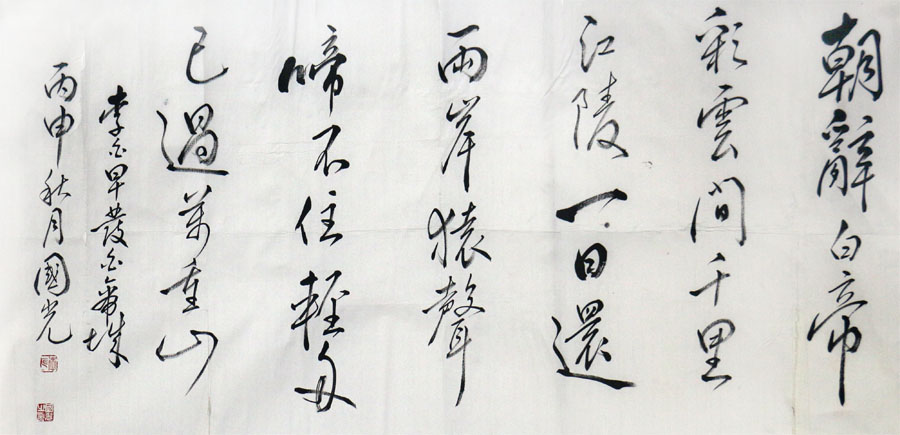 朝辭白帝
彩雲間千里
江陵一日還
兩岸猿聲
啼不住輕舟
已過萬重山
李白早發白帝城
丙申秋月國光